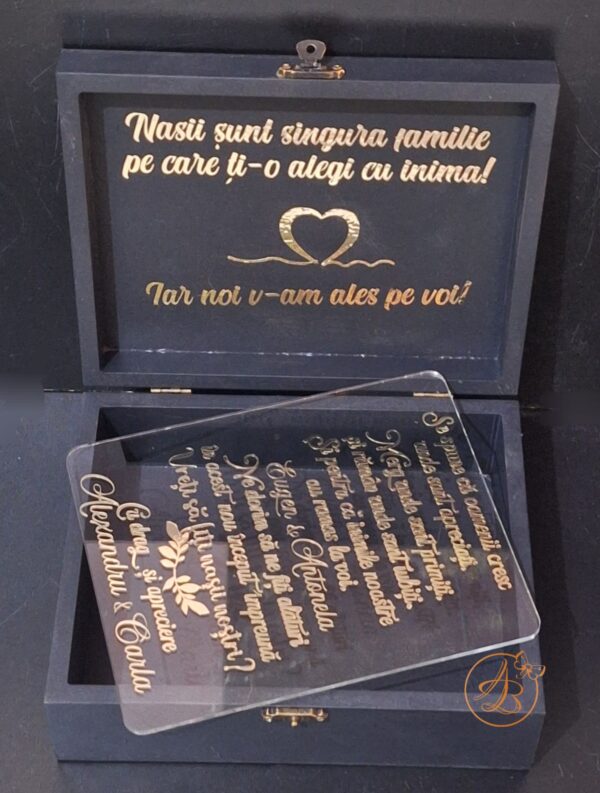 Nasii sunt singura familie
pe care ți-o alegi cu inima!
Iar noi v-am ales pe voi!
Se spune că oamenii cresc
unde sunt apreciați,
Merg unde sunt primiți,
și rămân unde sunt iubiți.
Și pentru că inimile noastre
au rămas la voi,
Eugen & Antonela
Ne dorim să ne fiți alături
în acest nou început împreună
Vreți să fiți nașii noștri?
Cu drag și apreciere
Alexandru & Carla
AB